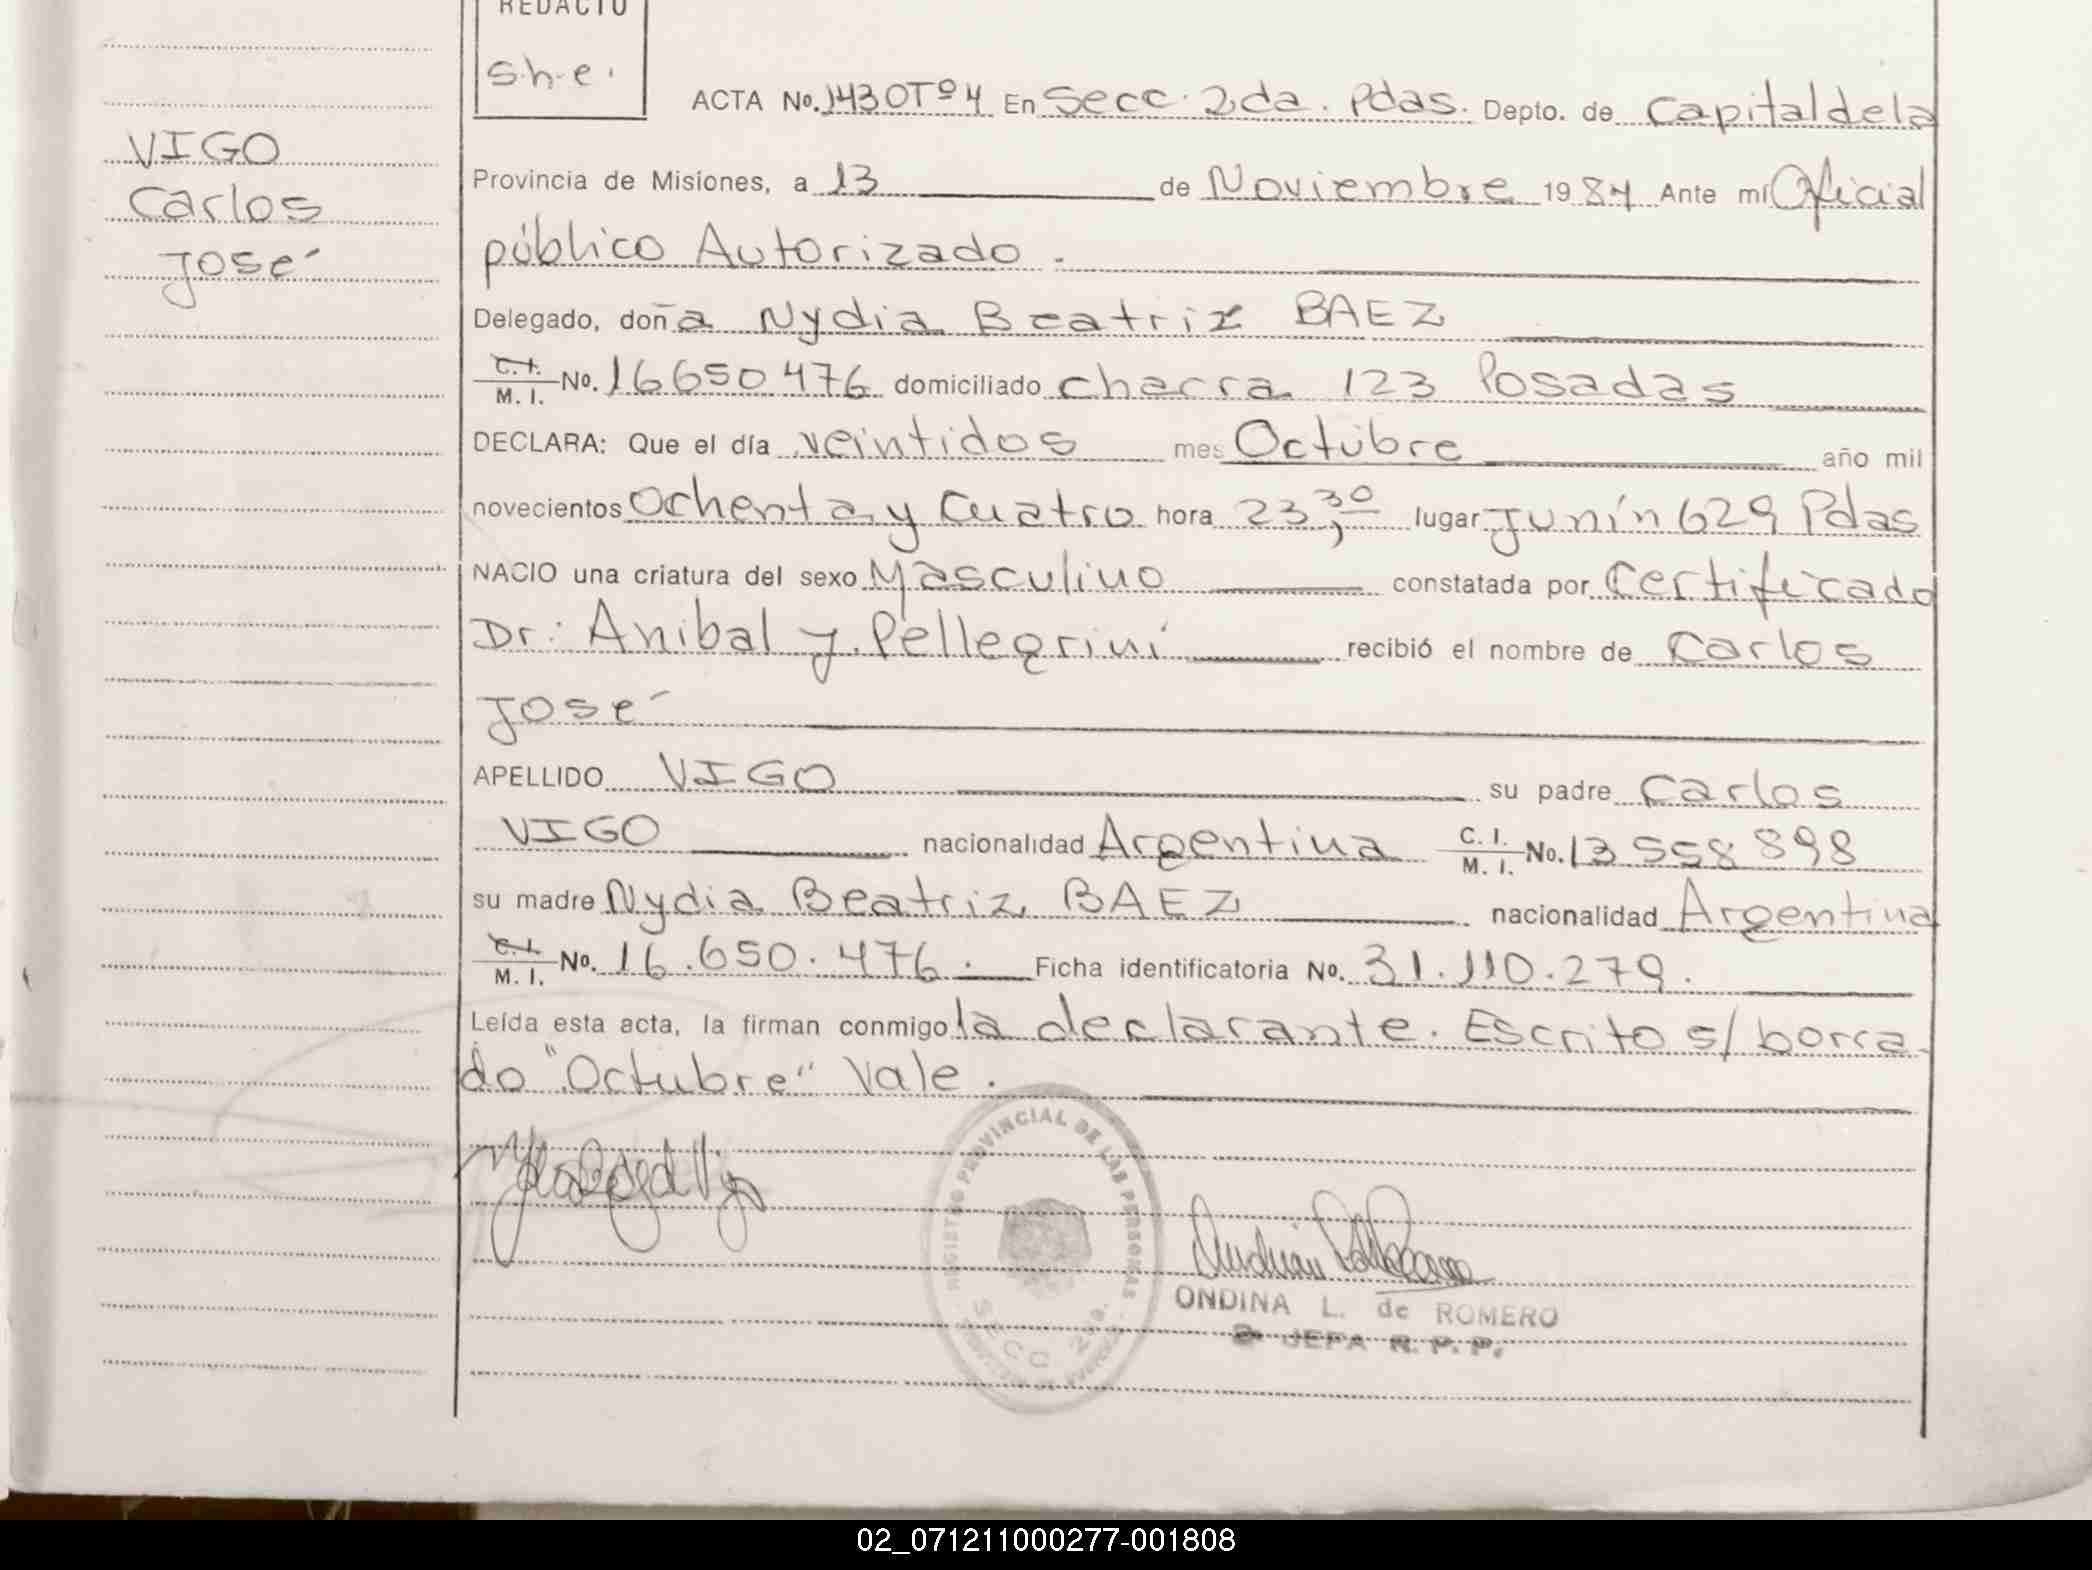 REDACTO
s.h.e.
ACTA No. 1430 Tº 4 En Secc. 2da. Pdas. Depto. de Capital de la
VIGO
Carlos
José
Provincia de Misiones, a 13 de Noviembre 1984 Ante mí Oficial
público Autorizado.
Delegado, doña Nydia Beatriz BAEZ
C.I. M. I. No. 16650476 domiciliado chacra 123 Posadas
DECLARA: Que el día veintidos mes Octubre año mil
novecientos Ochenta y Cuatro hora 23,30 lugar Junín 629 Pdas
NACIO una criatura del sexo Masculino constatada por Certificado
Dr: Anibal J. Pellegrini recibió el nombre de Carlos
José
APELLIDO VIGO su padre Carlos
VIGO nacionalidad Argentina C. I. M. I. No. 13558898
su madre Nydia Beatriz BAEZ nacionalidad Argentina
C.I. M. I. No. 16.650.476. Ficha identificatoria No. 31.110.279.
Leída esta acta, la firman conmigo la declarante. Escrito s/ borra
do "Octubre" Vale.
REGISTRO PROVINCIAL DE LAS PERSONAS
SECC 2da.
ONDINA L. de ROMERO
JEFA R. P. P.
02_071211000277-001808